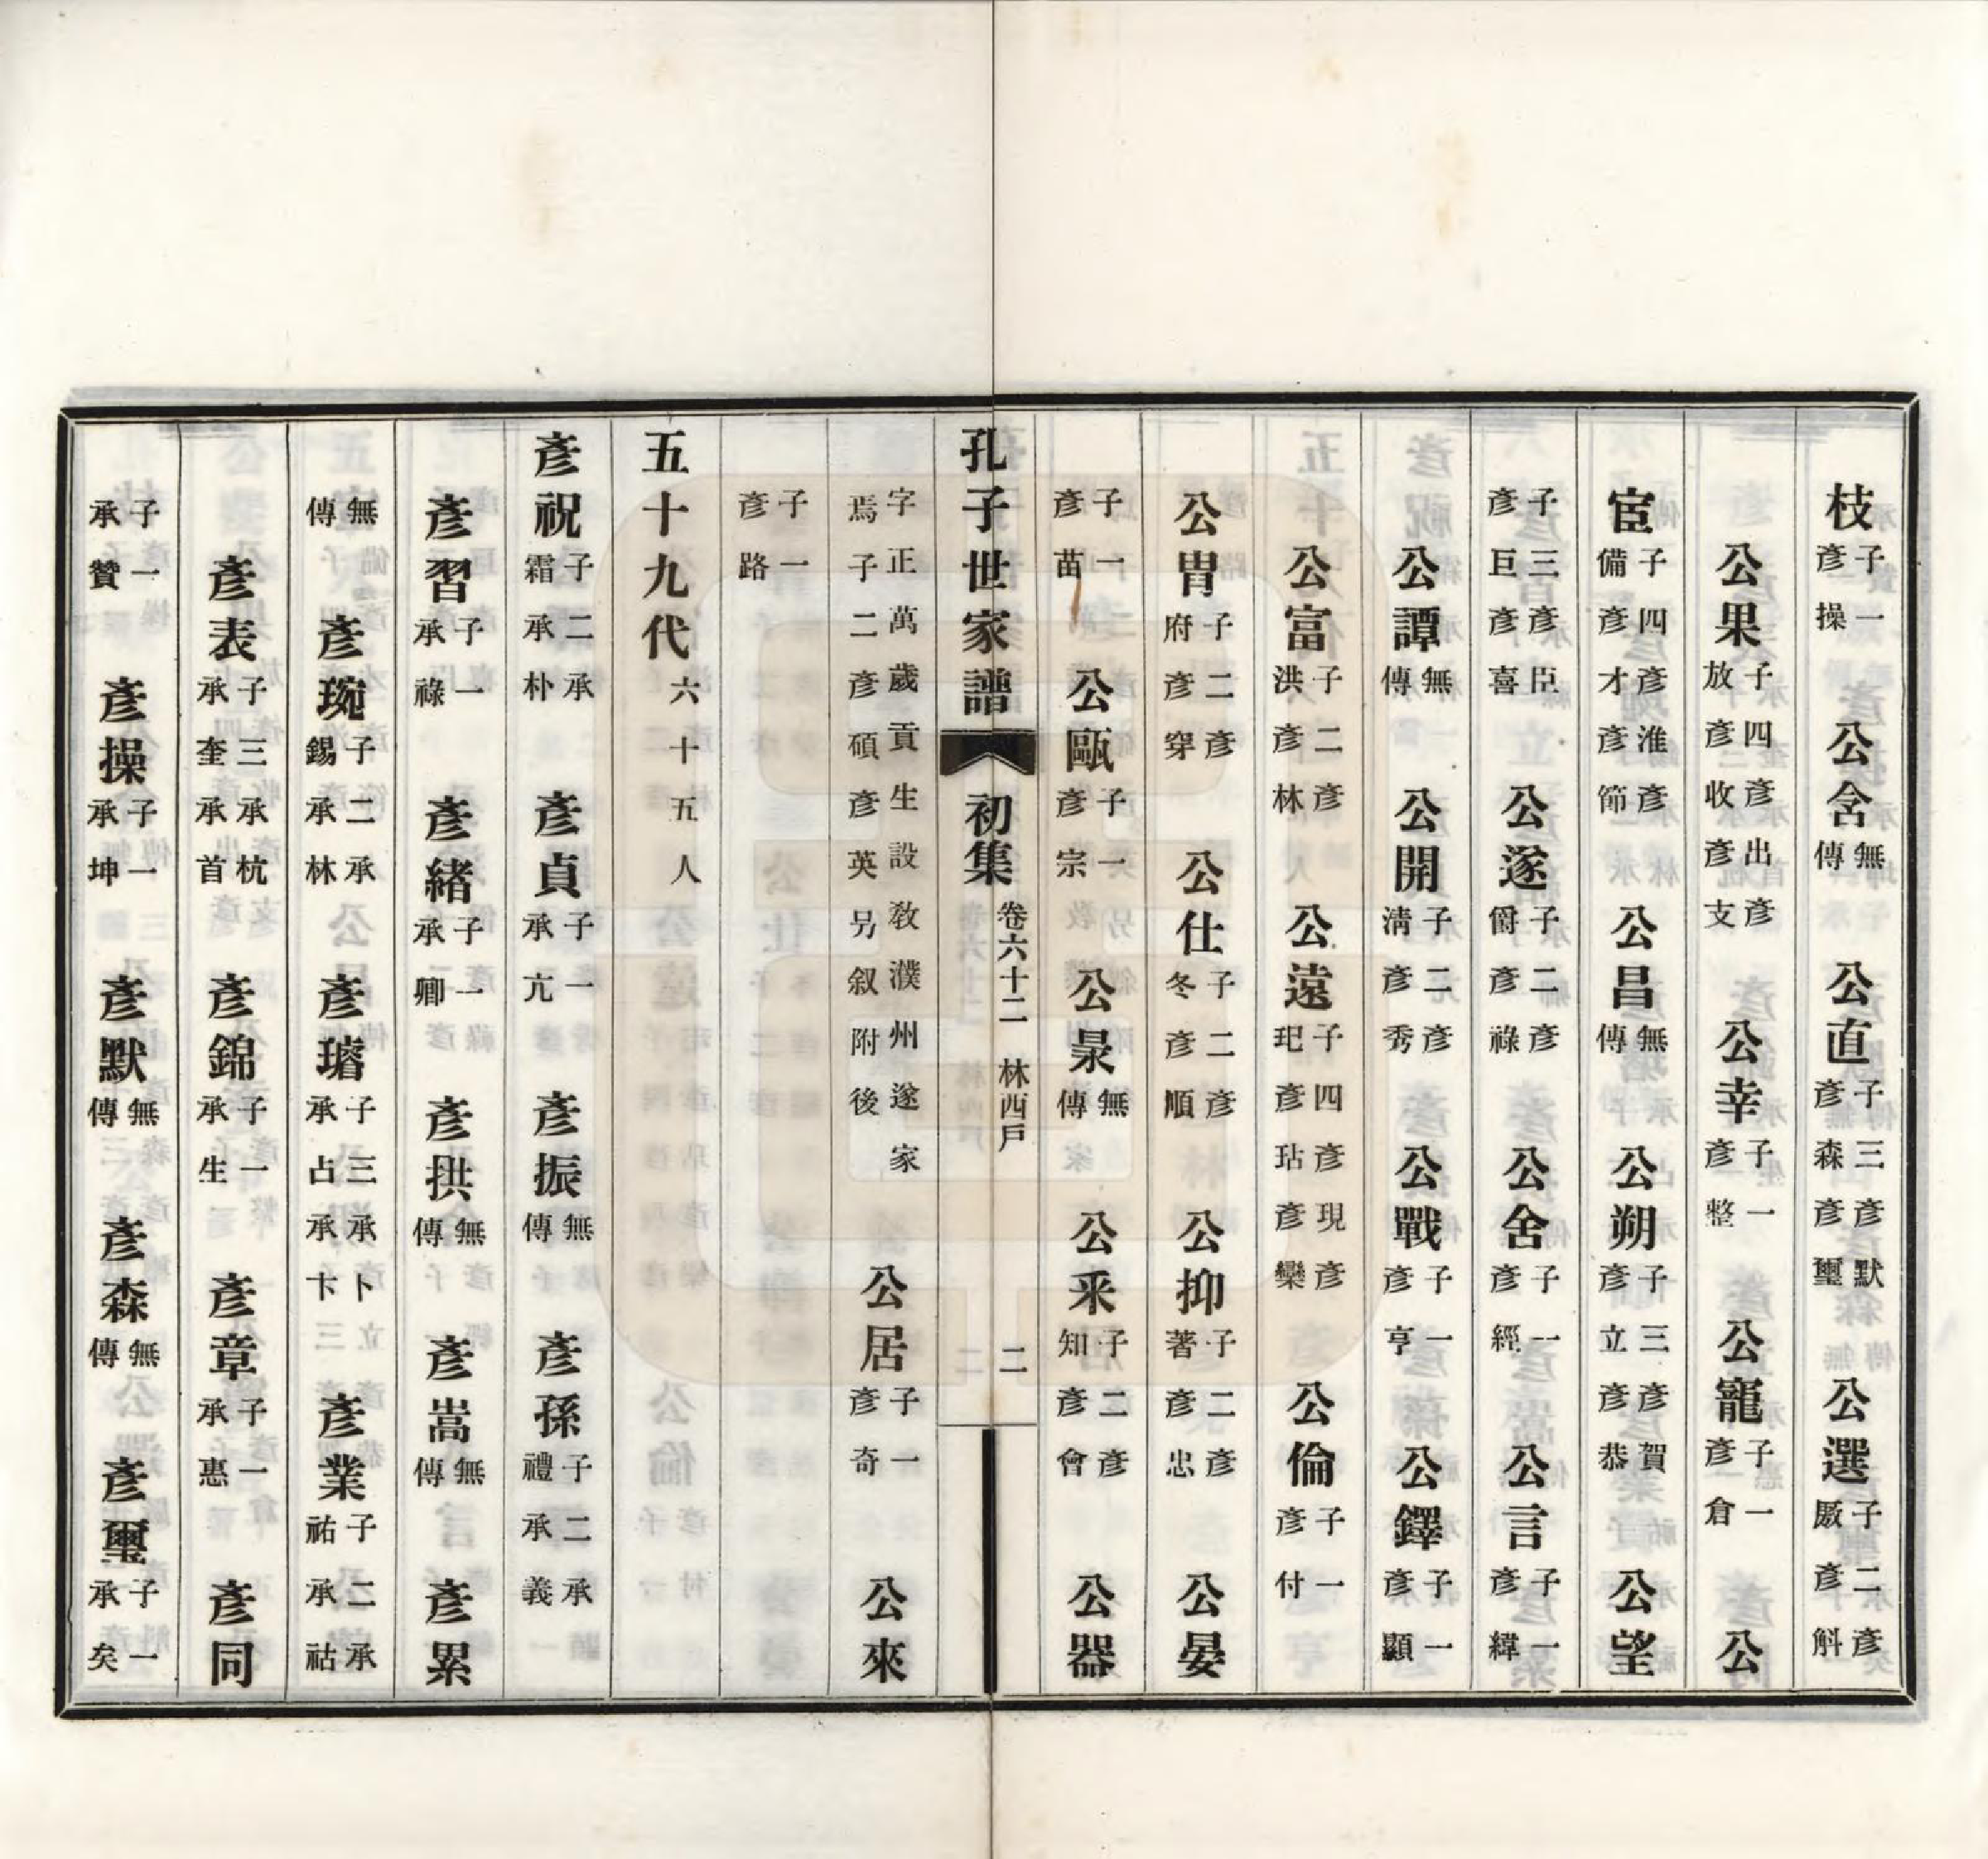 枝子一彥操　公含無傳　公直子三彥默彥森彥璽　公選子二彥斛彥厫
公果子四彥出彥支彥收彥放　公幸子一彥整　公寵子一彥倉　公
宦子四彥淮彥節彥才彥備　公昌無傳　公朔子三彥賀彥恭彥立　公望
子三彥臣彥喜彥巨　公遂子二彥祿彥爵　公舍子一彥經　公言子一彥緯
公譚無傳　公開子二彥秀彥淸　公戰子一彥亨　公鐸子一彥顯
公富子二彥林彥洪　公遠子四彥現彥欒彥玷彥玘　公倫子一彥付
公冑子二彥穿彥府　公仕子二彥順彥冬　公抑子二彥忠彥著　公晏
子一彥苗　公甌子一彥宗　公杲無傳　公采子二彥會彥知　公器
孔子世家譜　初集　卷六十二　林西戶　二
字正萬歲貢生設敎濮州遂家焉子二彥碩彥英另叙附後　公居子一彥奇　公來
子一彥路
五十九代六十五人
彥祝子二承朴承霜　彥貞子一承亢　彥振無傳　彥孫子二承義承禮
彥習子一承祿　彥緒子一承卿　彥拱無傳　彥嵩無傳　彥累
無傳　彥琬子二承林承錫　彥璿子三承卜承卞承占　彥業子二承祜承祐
彥表子三承杭承首承奎　彥錦子一承生　彥章子一承惠　彥同
子一承贊　彥操子一承坤　彥默無傳　彥森無傳　彥璽子一承矣